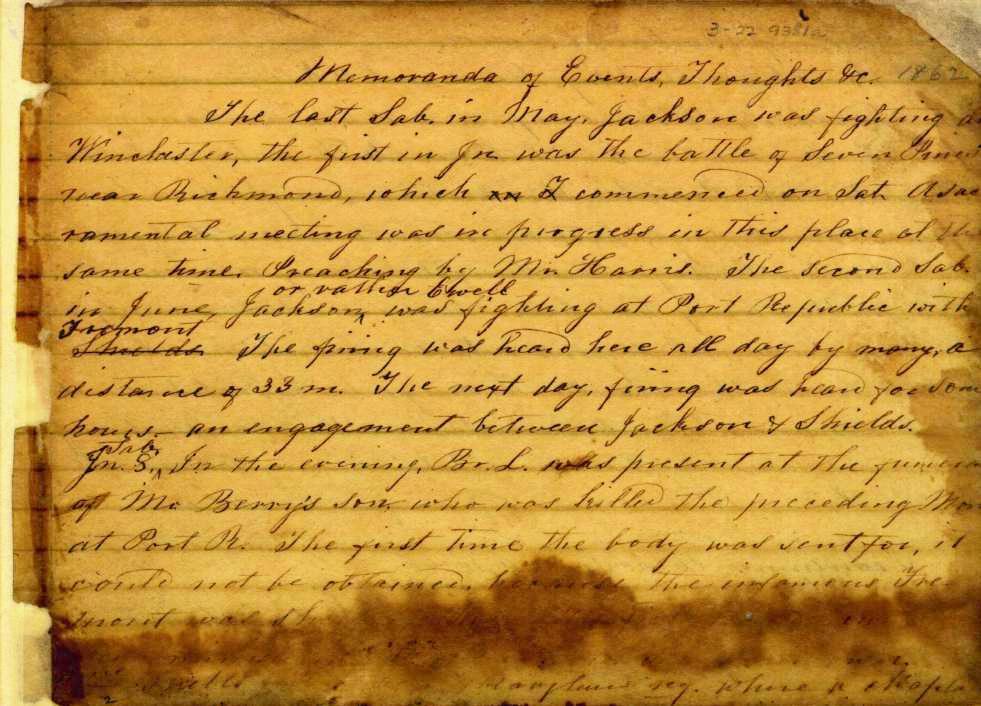 3-22 9381a
Memoranda of Events, Thoughts &c. 1862
The last Sab. in May, Jackson was fighting at
Winchester, the first in Jn. was the battle of Seven Pines
near Richmond, which commenced on Sat. A sac
ramental meeting was in progress in this place at the
same time. Preaching by Mr. Harris. The second Sab.
or rather Ewell
in June, Jackson, was fighting at Port Republic with
Fremont
Shields. The firing was heard here all day by many, a
distance of 33 m. The next day, firing was heard for some
hours – an engagement between Jackson & Shields.
Sab.
Jn. In the evening, Br. L. was present at the funeral
of Mr Berry's son, who was killed the preceding Mon
at Port R. The first time the body was sent for, it
could not be obtained, because the infamous Fre-
mont was
reg. where a